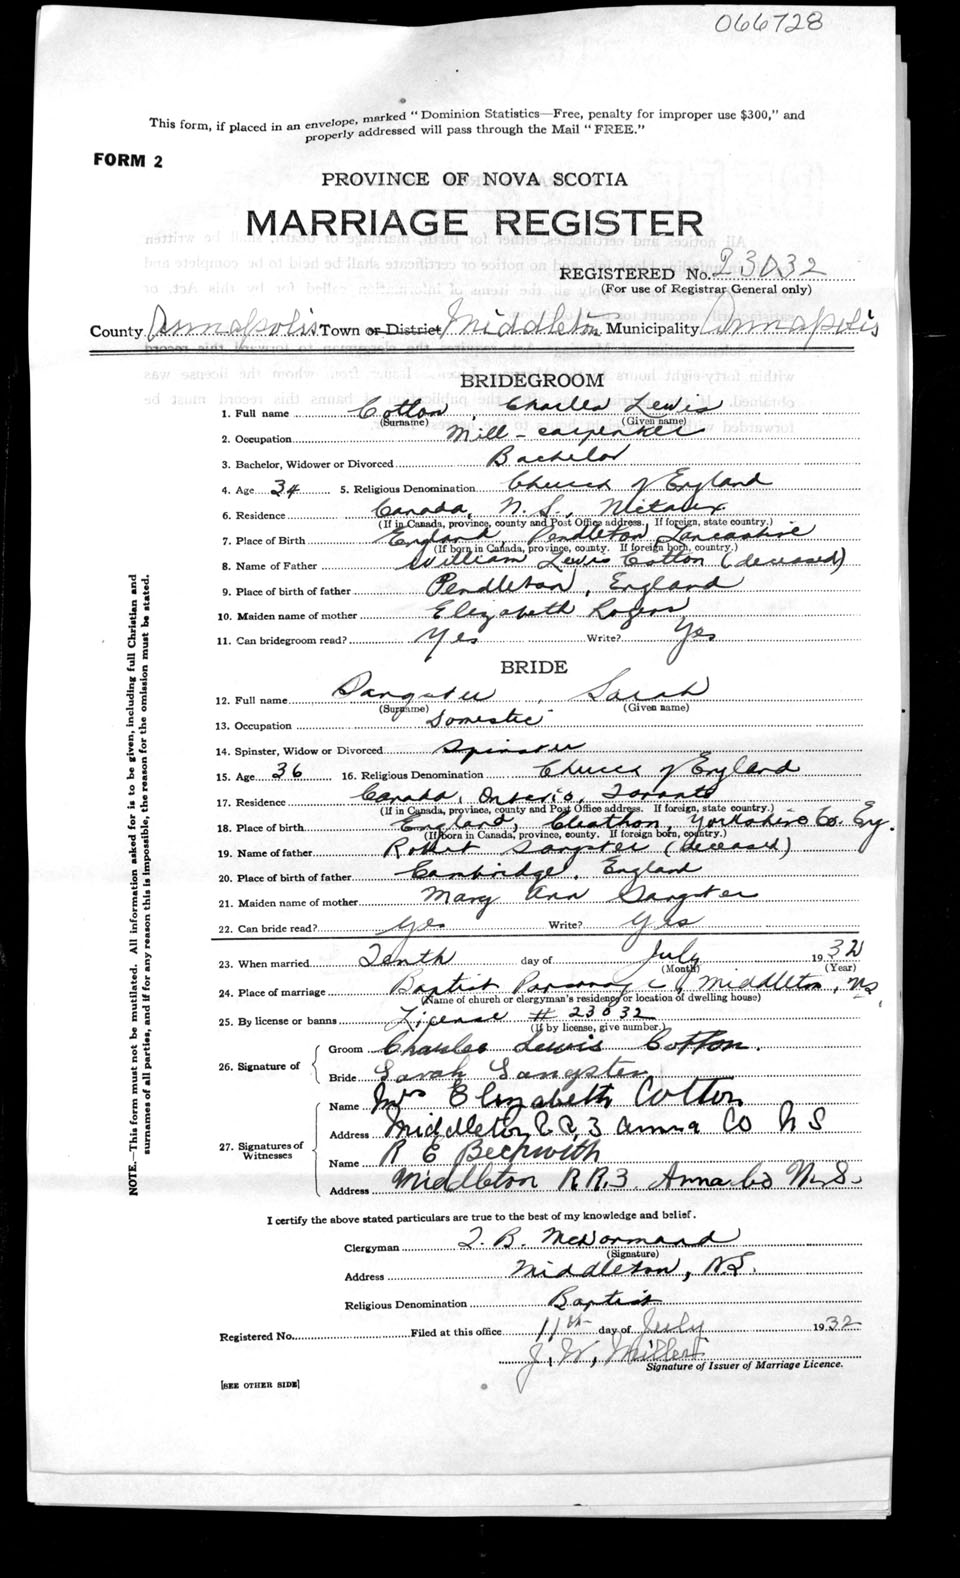 066728
This form, if placed in an envelope, marked "Dominion Statistics—Free, penalty for improper use $300," and
properly addressed will pass through the Mail "FREE."
FORM 2
PROVINCE OF NOVA SCOTIA
MARRIAGE REGISTER
REGISTERED No. 23032
(For use of Registrar General only)
County Annapolis Town or District Middleton Municipality Annapolis
BRIDEGROOM
1. Full name Cotton, Charles Lewis
(Surname) (Given name)
2. Occupation Mill-carpenter
3. Bachelor, Widower or Divorced Bachelor
4. Age 34 5. Religious Denomination Church of England
6. Residence Canada, N.S., Nictaux
(If in Canada, province, county and Post Office address. If foreign, state country.)
7. Place of Birth England, Pendleton, Lancashire
(If born in Canada, province, county. If foreign born, country.)
8. Name of Father William Lewis Cotton (deceased)
9. Place of birth of father Pendleton, England
10. Maiden name of mother Elizabeth Rogers
11. Can bridegroom read? Yes Write? Yes
BRIDE
12. Full name Sangster, Sarah
(Surname) (Given name)
13. Occupation Domestic
14. Spinster, Widow or Divorced Spinster
15. Age 36 16. Religious Denomination Church of England
17. Residence Canada, Ontario, Toronto
(If in Canada, province, county and Post Office address. If foreign, state country.)
18. Place of birth England, Cleathon, Yorkshire Co. Eng.
(If born in Canada, province, county. If foreign born, country.)
19. Name of father Robert Sangster (deceased)
20. Place of birth of father Cambridge, England
21. Maiden name of mother Mary Ann Sangster
22. Can bride read? Yes Write? Yes
23. When married Tenth day of July 1932
(Month) (Year)
24. Place of marriage Baptist Middleton, NS,
(Name of church or clergyman's residence or location of dwelling house)
25. By license or banns License # 23032
(If by license, give number.)
26. Signature of Groom Charles Lewis Cotton.
Bride Sarah Sangster
27. Signatures of Witnesses Name Mrs Elizabeth Cotton
Address Middleton R R 3 Anna Co N S
Name R E Beckwith
Address Middleton R.R.3. Anna Co N.S.
I certify the above stated particulars are true to the best of my knowledge and belief.
Clergyman McDormand
(Signature)
Address Middleton, N.S.
Religious Denomination Baptist
Registered No. Filed at this office 11th day of July 1932
J. W.
Signature of Issuer of Marriage Licence.
[SEE OTHER SIDE]
NOTE.—This form must not be mutilated. All information asked for is to be given, including full Christian and
surnames of all parties, and if for any reason this is impossible, the reason for the omission must be stated.